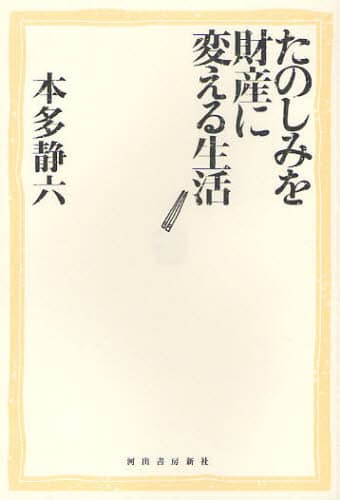 たのしみを
財産に
変える生活
本多静六
河出書房新社